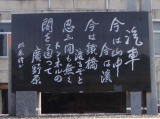 汽車
今は山中
今は浜
今は鉄橋
渡るぞと
思う間も無く
トンネルの
闇を通って
廣野原